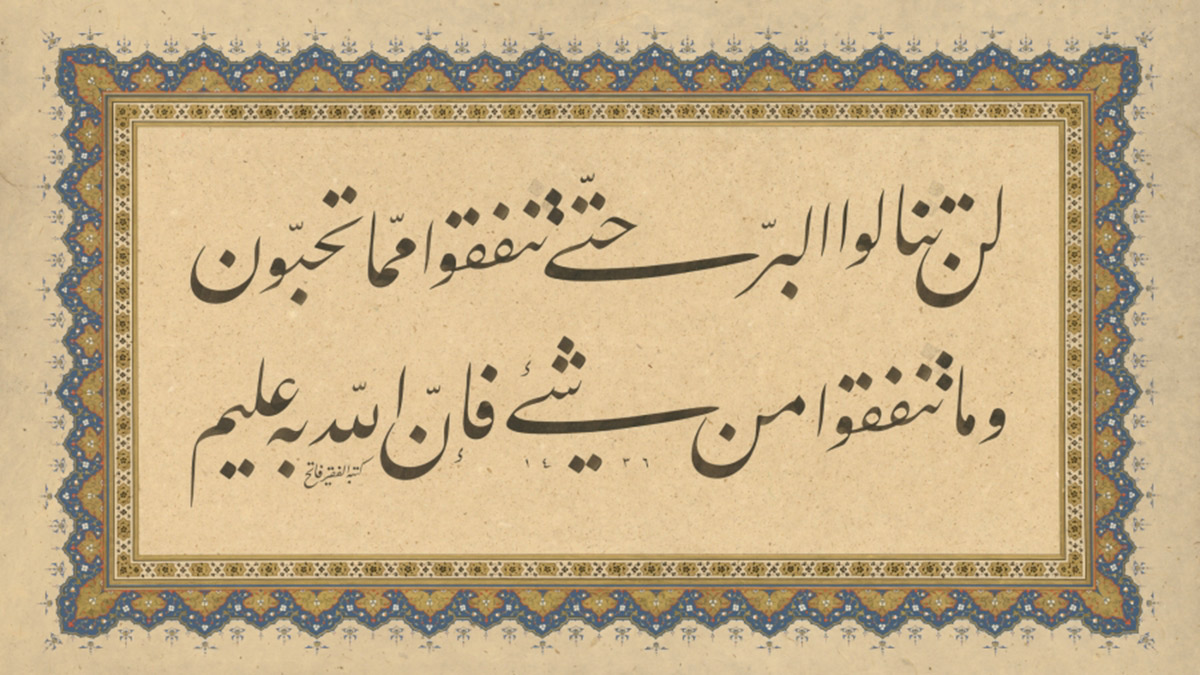 لن تنالوا البرّ حتّى تنفقوا ممّا تحبّون
وما تنفقوا من شئ فإنّ اللّٰه به عليم
١٤٣٦
كتبه الفقير فاتح